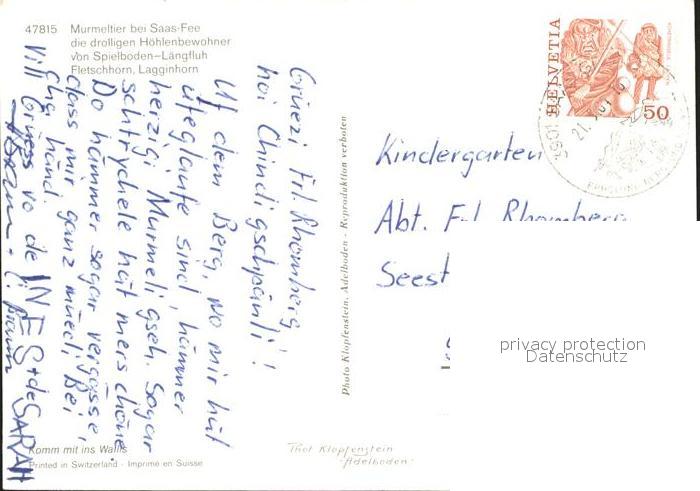 47815 Murmeltier bei Saas-Fee
die drolligen Höhlenbewohner
von Spielboden–Längfluh
Fletschhorn, Lagginhorn
Grüezi Frl. Rhomberg,
hoi Chindigschpänli!
Uf dem Berg, wo mir hüt
ufegloufe sind, hämmer
herzigi Murmeli gseh. Sogar
schtrychele hät mers chöne.
Do hämmer sogar vergässe,
dass mir ganz müedi Bei
gha händ.
Vill Grüess vo de INES + de SARAH
Photo Klopfenstein, Adelboden - Reproduktion verboten
Komm mit ins Wallis
Printed in Switzerland - Imprimé en Suisse
Thol Klopfenstein
Adelboden
HELVETIA
50
3901
21.
Kindergarten
Abt. Frl. Rhomberg
Seest
privacy protection
Datenschutz